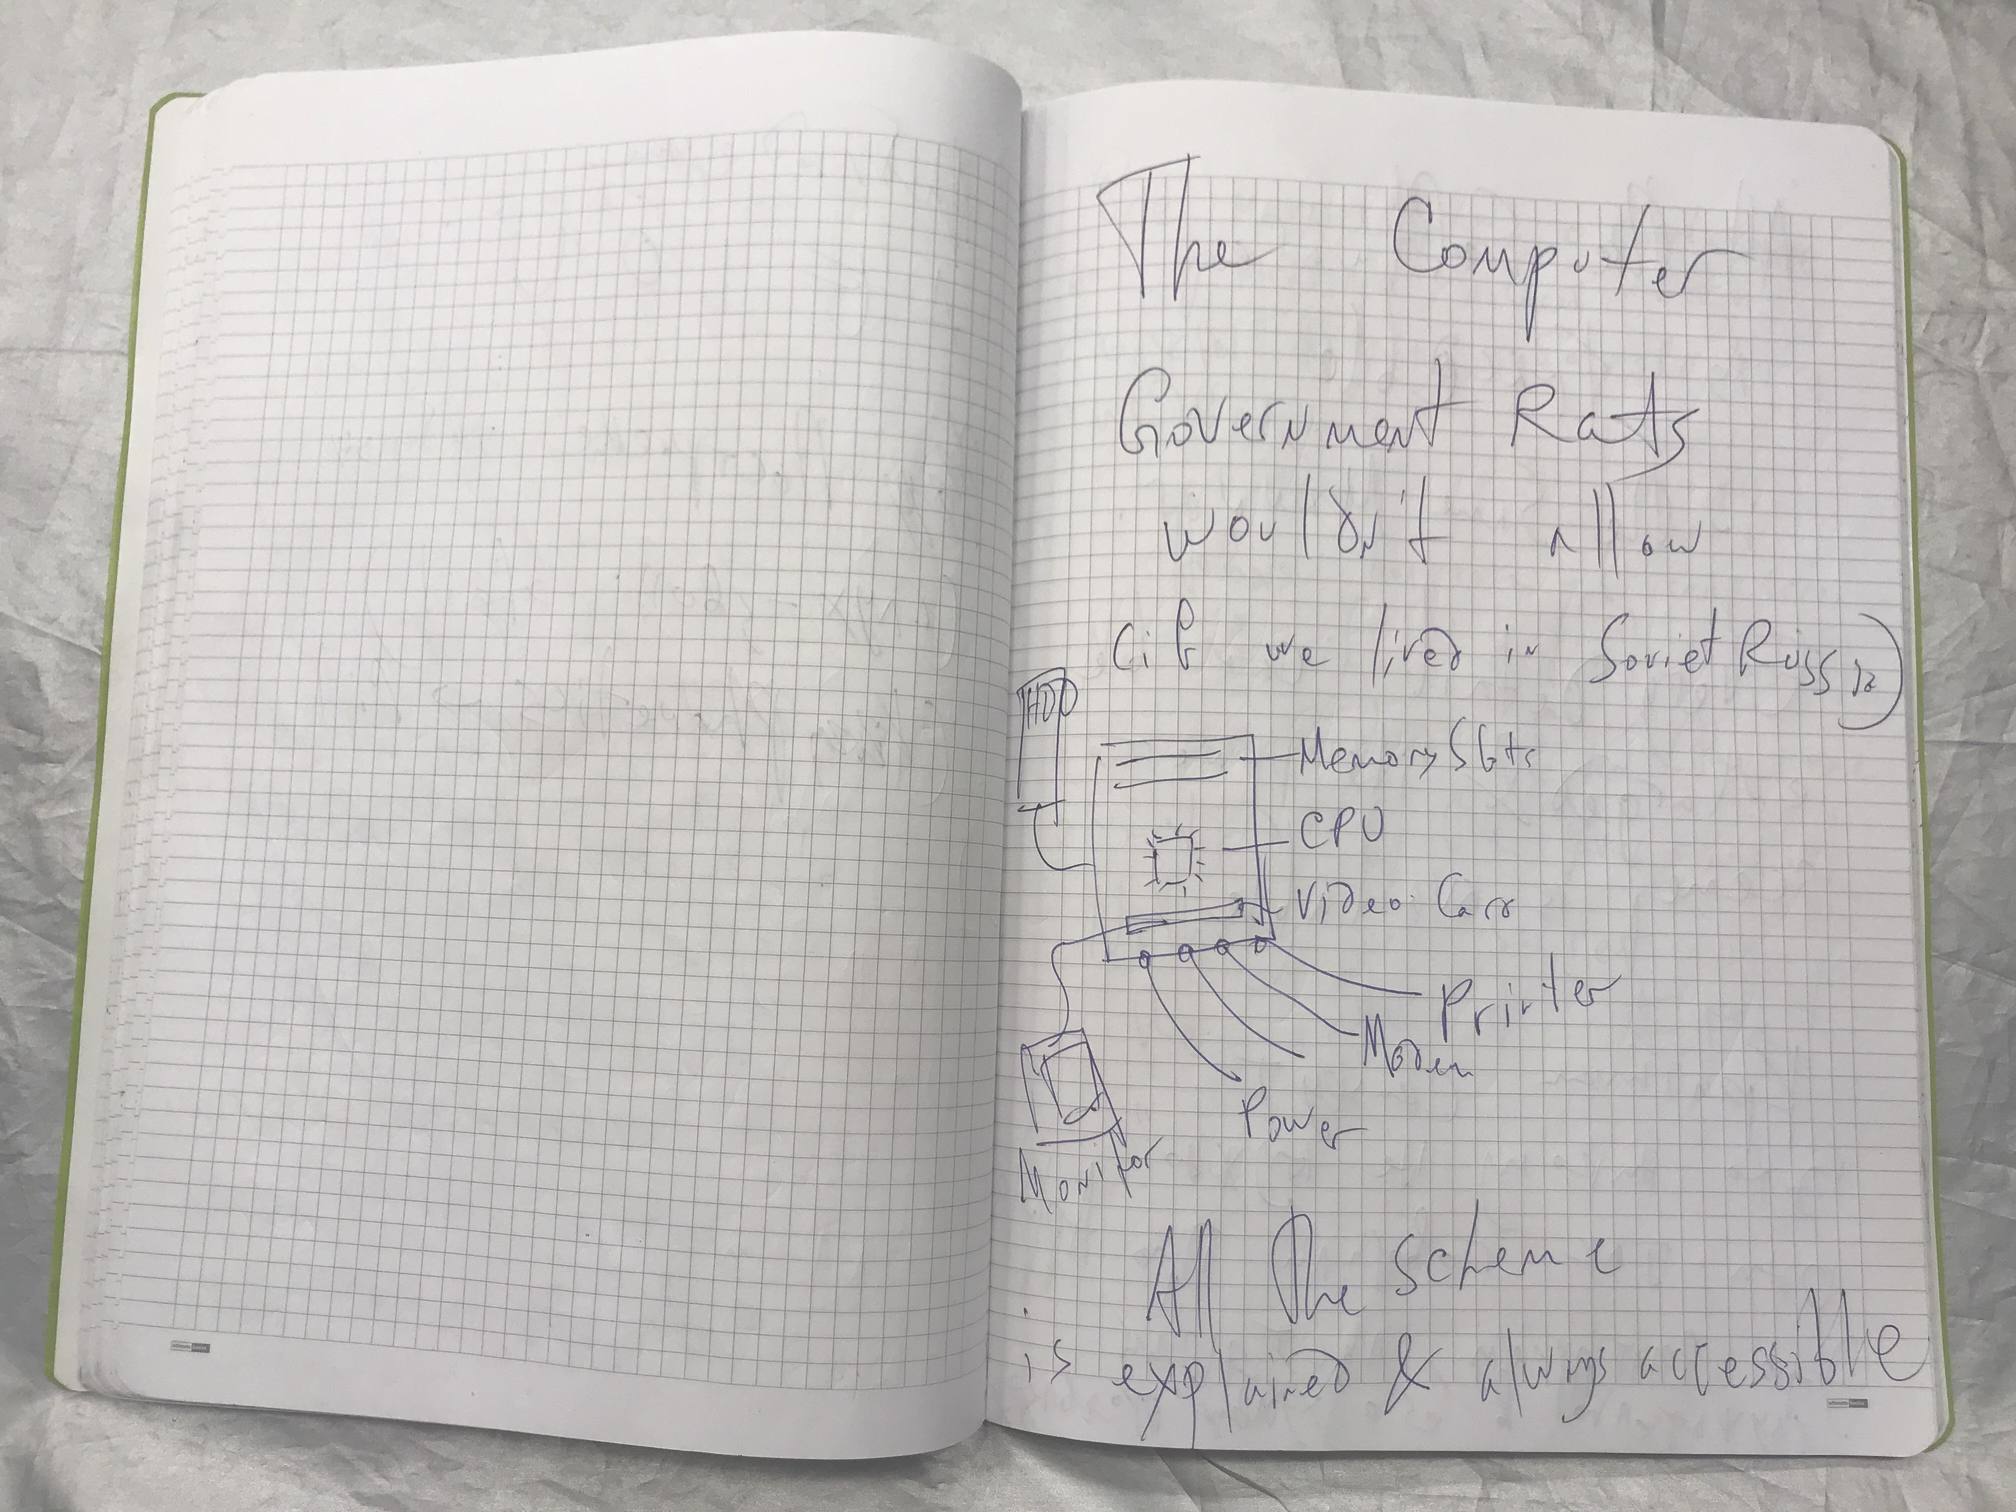 The Computer
Government Rats
wouldn't allow
(if we lived in Soviet Russia)
HDD
Memory Slots
CPU
Video Card
Printer
Modem
Power
Monitor
All The scheme
is explained & always accessible